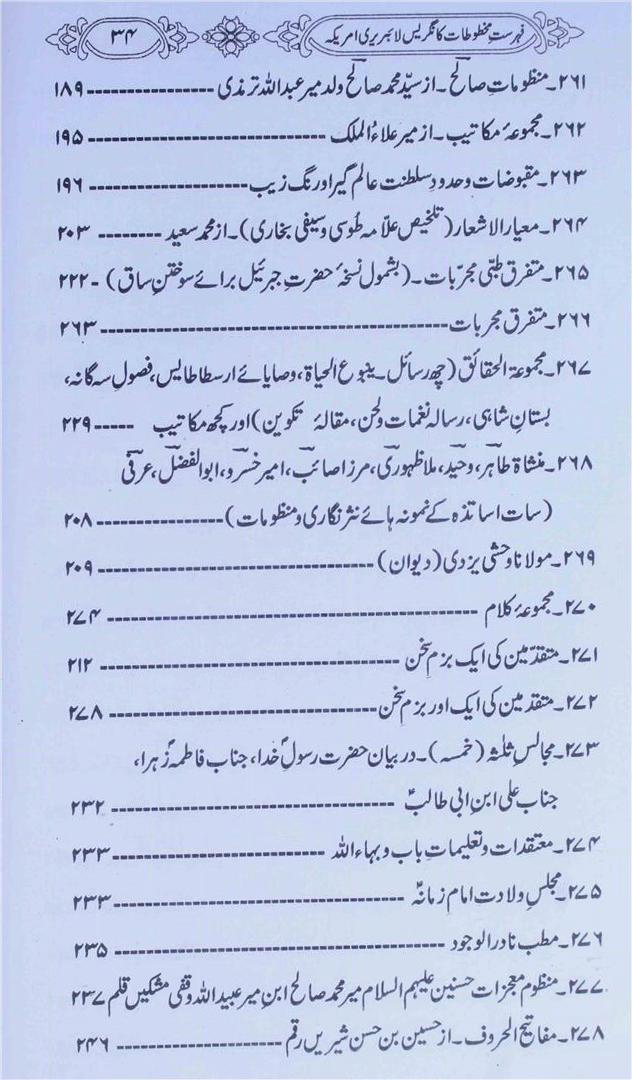 فہرستِ مخطوطات کانگریس لائبریری امریکہ ۳۴
۲۶۱۔ منظوماتِ صالح۔ از سیّد محمد صالح ولد میر عبداللہ ترمذی ---------------- ۱۸۹
۲۶۲۔ مجموعۂ مکاتیب۔ از میر علاءُ الملک ---------------------------- ۱۹۵
۲۶۳۔ مقبوضات و حدودِ سلطنت عالم گیر اورنگ زیب ---------------- ۱۹۶
۲۶۴۔ معیار الاشعار (تلخیص علّامہ طُوسی و سیفی بخاری)۔ از محمد سعید -------- ۲۰۳
۲۶۵۔ متفرق طبّی مجرّبات۔ (بشمول نسخۂ حضرتِ جبرئیل برائے سوختنِ ساق) -۲۲۲
۲۶۶۔ متفرق مجربات ------------------------------------ ۲۶۳
۲۶۷۔ مجموعۃ الحقائق (چھ رسائل۔ ینبوع الحیاۃ، وصایائے ارسطاطالیس، فصولِ سہ گانہ،
بستانِ شاہی، رسالہ نغمات و لحن، مقالۂ تکوین) اور کچھ مکاتیب ----- ۲۲۹
۲۶۸۔ منشاۃ طاہر، وحید، ملا ظہوری، مرزا صائب، امیر خسرو، ابوالفضل، عرفی
(سات اساتذہ کے نمونہ ہائے نثر نگاری و منظومات) ---------------- ۲۰۸
۲۶۹۔ مولانا وحشی یزدی (دیوان) ----------------------------- ۲۰۹
۲۷۰۔ مجموعۂ کلام --------------------------------------- ۲۷۴
۲۷۱۔ متقدّمین کی ایک بزم سخن ------------------------------- ۲۱۲
۲۷۲۔ متقدمین کی ایک اور بزم سخن ---------------------------- ۲۷۸
۲۷۳۔ مجالسِ ثلثہ (خمسہ)۔ در بیان حضرت رسولِ خداؐ، جناب فاطمہ زہراؑ،
جناب علی ابنِ ابی طالبؑ ------------------------------ ۲۳۲
۲۷۴۔ معتقدات و تعلیماتِ باب و بہاء اللہ ---------------------- ۲۳۳
۲۷۵۔ مجلسِ ولادت امام زمانہؑ -------------------------------- ۲۳۳
۲۷۶۔ مطب نادر الوجود ----------------------------------- ۲۳۵
۲۷۷۔ منظوم معجزات حسنین علیہم السلام میر محمد صالح ابنِ میر عبید اللہ وقفی مشکیں قلم ۲۳۷
۲۷۸۔ مفاتیح الحروف۔ از حسین بن حسن شیریں رقم ------------------ ۲۴۶